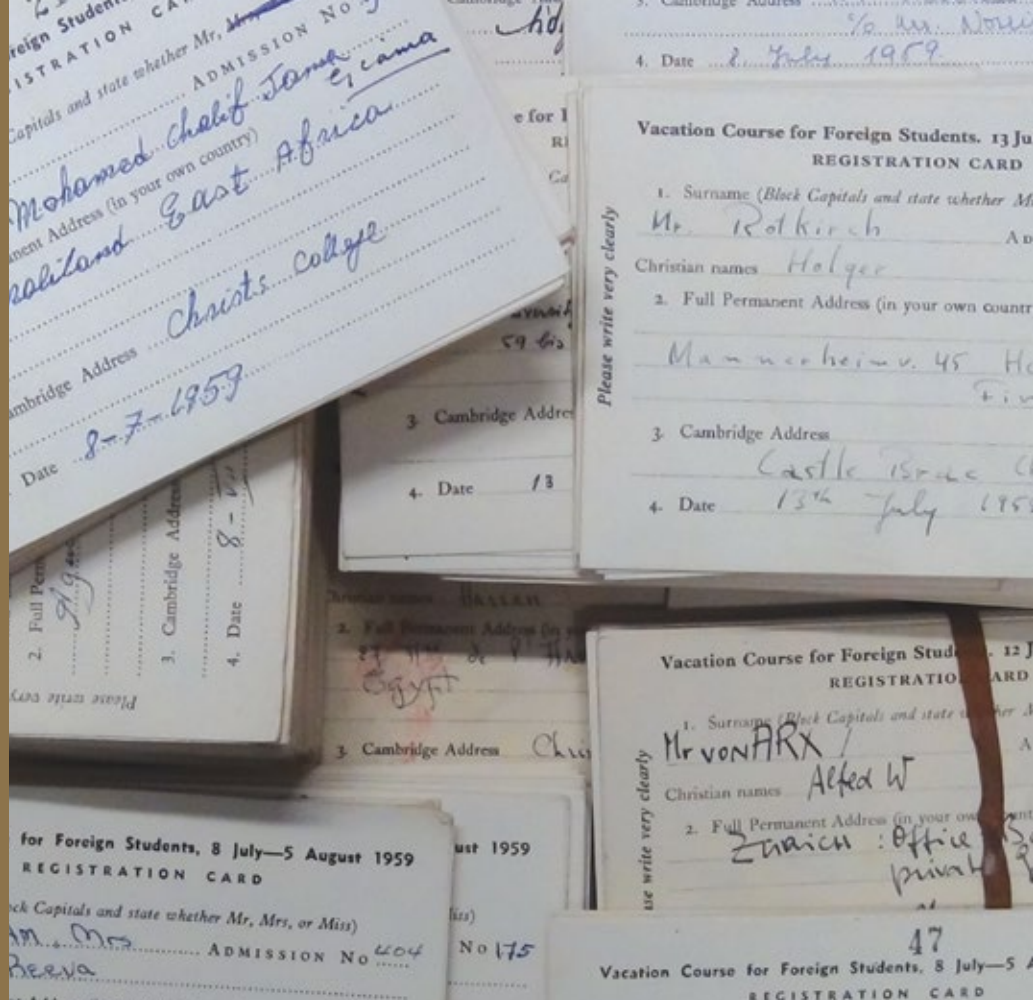 ISTRATION CA
Capitals and state whether Mr,
ADMISSION No
Mohamed Chalif Jama
nent Address (in your own country)
East Africa
Cambridge Address Christs College
Date 8-7-1959
4. Date 2. July 1959.
Vacation Course for Foreign Students. 13 Ju
REGISTRATION CARD
1. Surname (Block Capitals and state whether M
Mr. Rotkirch
Christian names Holger
2. Full Permanent Address (in your own countr
Mannerheimv. 45
3. Cambridge Address
Castle Brae
4. Date 13th July 195
Please write very clearly
59 bis
3. Cambridge Addre
4. Date 13
2. Full Perm
3. Cambridge Address
4. Date 8-
Please write very
Christian names
2. Full Permanent Address (in
Egypt
3. Cambridge Address
Vacation Course for Foreign Stud . 12 J
REGISTRATIO ARD
1. Surname (Block Capitals and state
Mr von ARX
Christian names Alfred W
2. Full Permanent Address (in your own
Zürich : Office
private
se write very clearly
for Foreign Students, 8 July—5 August 1959
REGISTRATION CARD
ck Capitals and state whether Mr, Mrs, or Miss)
Mrs ADMISSION No 404
ust 1959
iss)
No 175
47
Vacation Course for Foreign Students, 8 July—5 A
REGISTRATION CARD